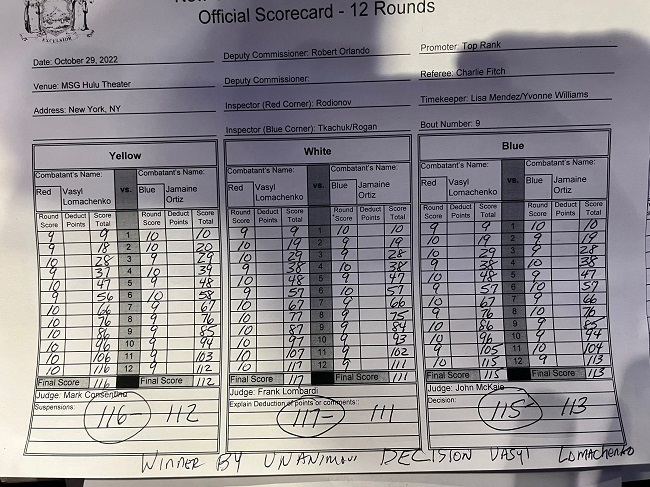 Official Scorecard - 12 Rounds
EXCELSIOR
Date: October 29, 2022
Deputy Commissioner: Robert Orlando
Promoter: Top Rank
Venue: MSG Hulu Theater
Deputy Commissioner:
Referee: Charlie Fitch
Address: New York, NY
Inspector (Red Corner): Rodionov
Timekeeper: Lisa Mendez/Yvonne Williams
Inspector (Blue Corner): Tkachuk/Rogan
Bout Number: 9
Yellow
Combatant's Name: Combatant's Name:
Red Vasyl Lomachenko vs. Blue Jamaine Ortiz
Round Score Deduct Points Score Total Round Score Deduct Points Score Total
9 9 1 10 10
9 18 2 10 20
10 28 3 9 29
9 37 4 10 39
10 47 5 9 48
9 56 6 10 58
10 66 7 9 67
10 76 8 9 76
10 86 9 9 85
10 96 10 9 94
10 106 11 9 103
10 116 12 9 112
Final Score 116 Final Score 112
Judge: Mark Consentino
Suspensions:
116- 112
White
Combatant's Name: Combatant's Name:
Red Vasyl Lomachenko vs. Blue Jamaine Ortiz
Round Score Deduct Points Score Total Round Score Deduct Points Score Total
9 9 1 10 10
10 19 2 9 19
10 29 3 9 28
9 38 4 10 38
10 48 5 9 47
9 57 6 10 57
10 67 7 9 66
10 77 8 9 75
10 87 9 9 84
10 97 10 9 93
10 107 11 9 102
10 117 12 9 111
Final Score 117 Final Score 111
Judge: Frank Lombardi
Explain Deduction of points or comments::
117- 111
Blue
Combatant's Name: Combatant's Name:
Red Vasyl Lomachenko vs. Blue Jamaine Ortiz
Round Score Deduct Points Score Total Round Score Deduct Points Score Total
9 9 1 10 10
10 19 2 9 19
10 29 3 9 28
9 38 4 10 38
10 48 5 9 47
9 57 6 10 57
10 67 7 9 66
9 76 8 10 76
10 86 9 9 85
10 96 10 9 94
9 105 11 10 104
10 115 12 9 113
Final Score 115 Final Score 113
Judge: John McKaie
Decision:
115- 113
WINNER BY UNANIMOUS DECISION VASYL LOMACHENKO